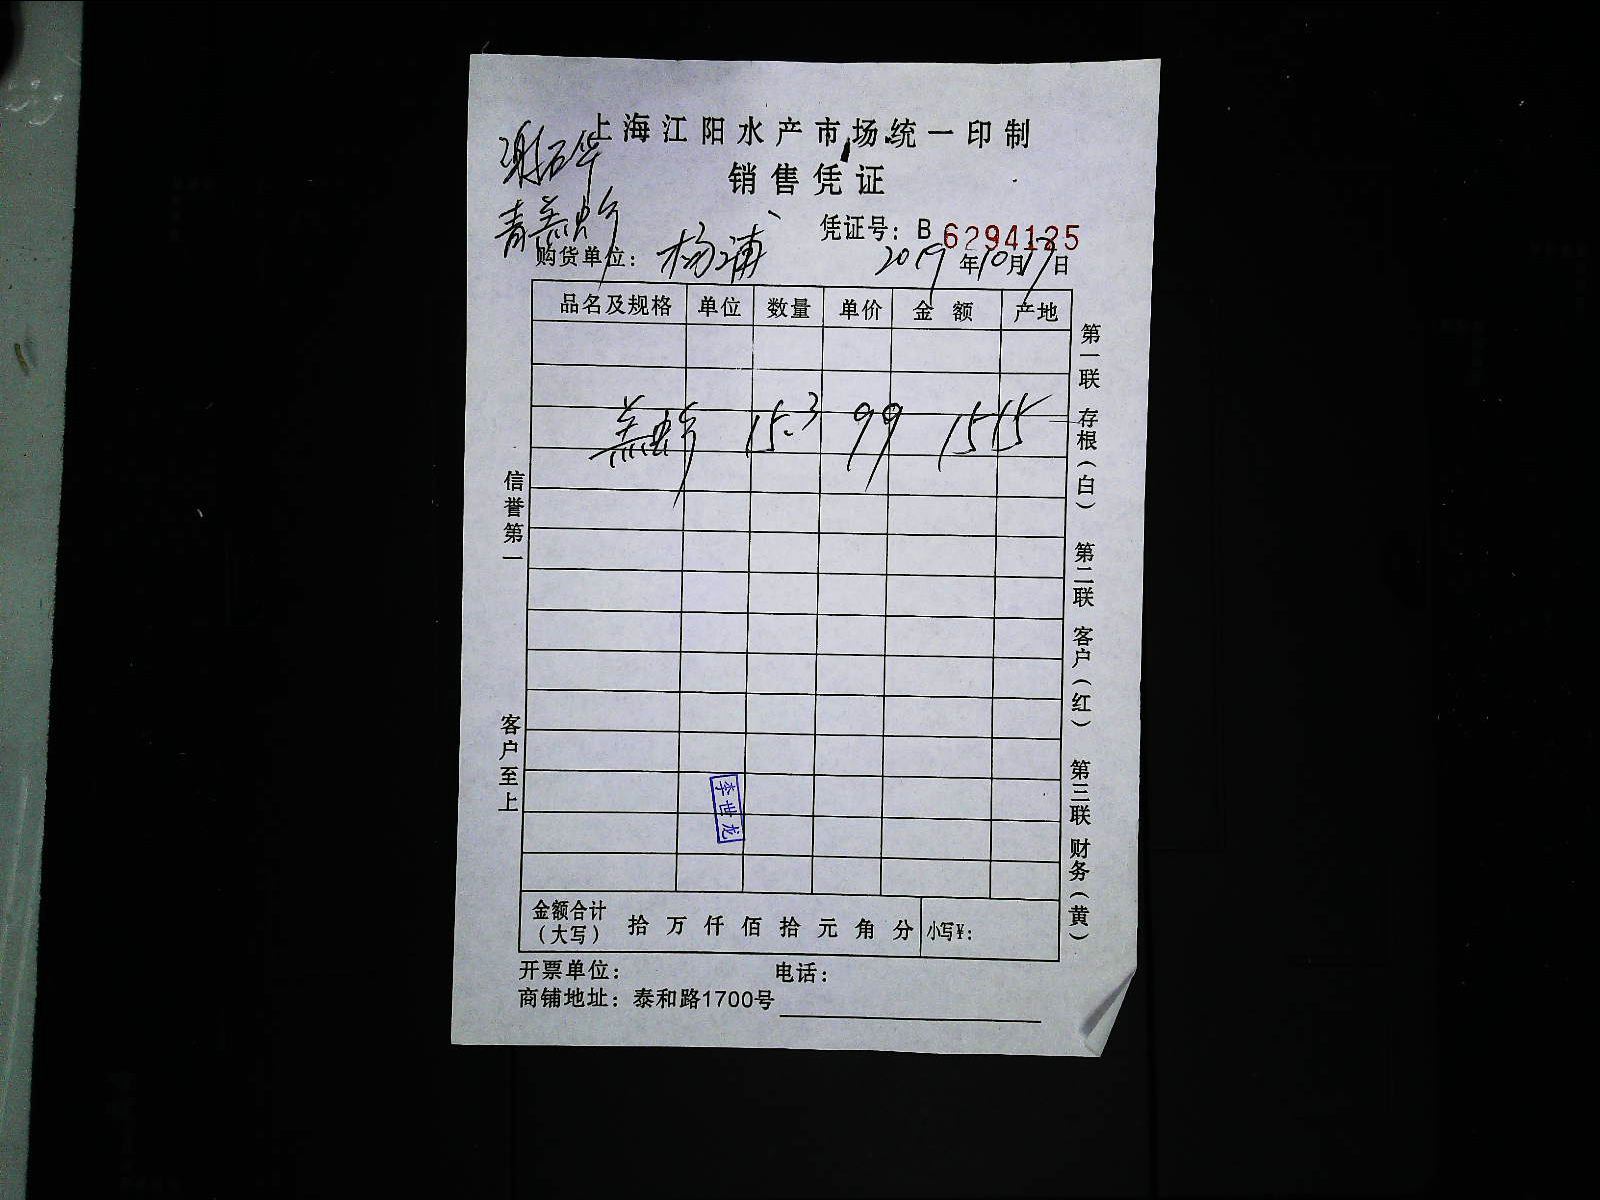 上海江阳水产市场统一印制
谢石华
销售凭证
青羔虾
凭证号：B 6294125
购货单位：杨浦 2019年10月17日
品名及规格 单位 数量 单价 金额 产地
羔虾 15.3 99 1515
信誉第一
客户至上
第一联 存根（白） 第二联 客户（红） 第三联 财务（黄）
李世龙
金额合计（大写） 拾 万 仟 佰 拾 元 角 分 小写¥：
开票单位： 电话：
商铺地址：泰和路1700号